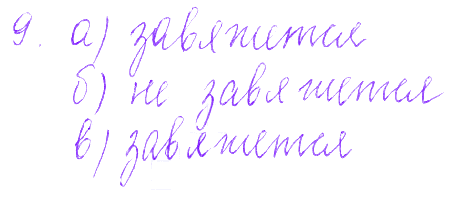 9. а) завяжется
б) не завяжется
в) завяжется